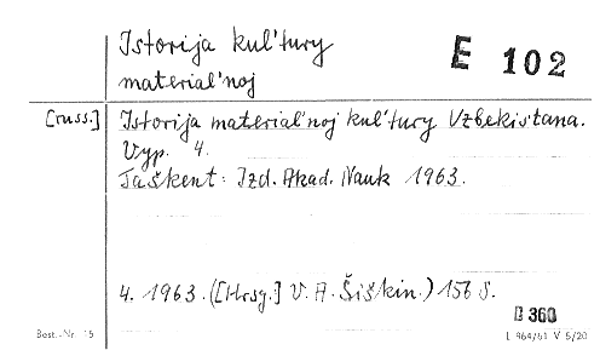 Istorija kul'tury
material'noj
E 102
[russ.] Istorija material'noj kul'tury Uzbekistana.
Vyp. 4.
Taškent: Izd. Akad. Nauk 1963.
4. 1963. ([Hrsg.] V. A. Šiškin.) 156 S.
D 360
Best.-Nr. 15
L 964/61 V 5/20